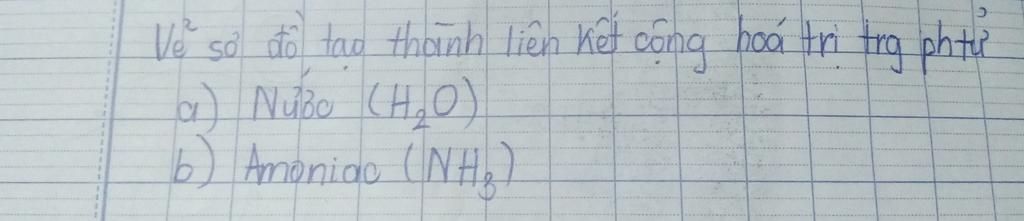 Vẽ sơ đồ tạo thành liên kết cộng hoá trị trg phtử
a) Nước (H₂O)
b) Amoniac (NH₃)